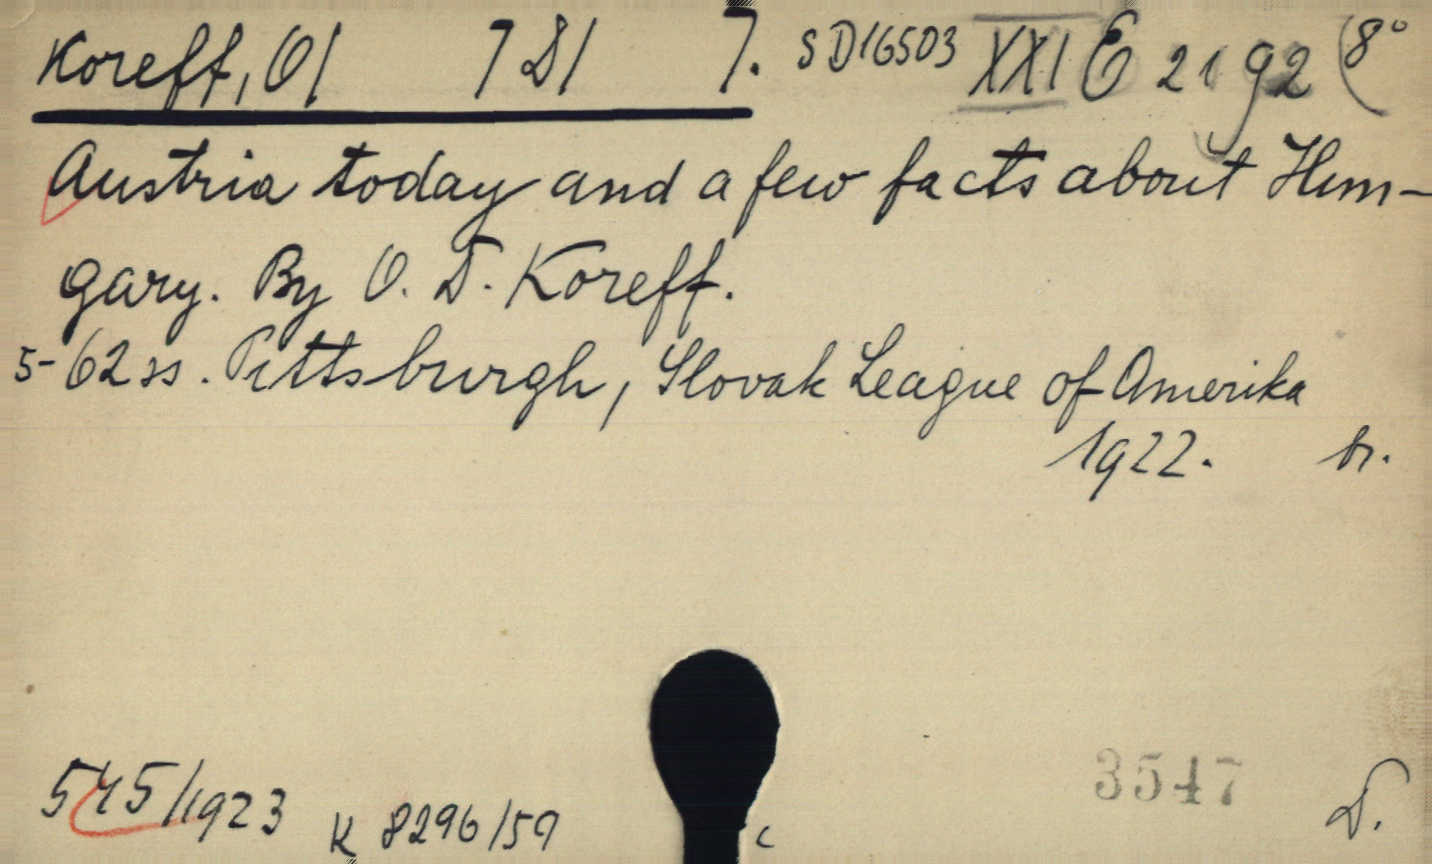 Koreff, O/ 7 D/ 7. SD16503 XXI E 2192 (8°
Austria today and a few facts about Hun-
gary. By O. D. Koreff.
5-62 ss. Pittsburgh, Slovak League of Amerika
1922. br.
545/1923 K 8296/59 3547 D.